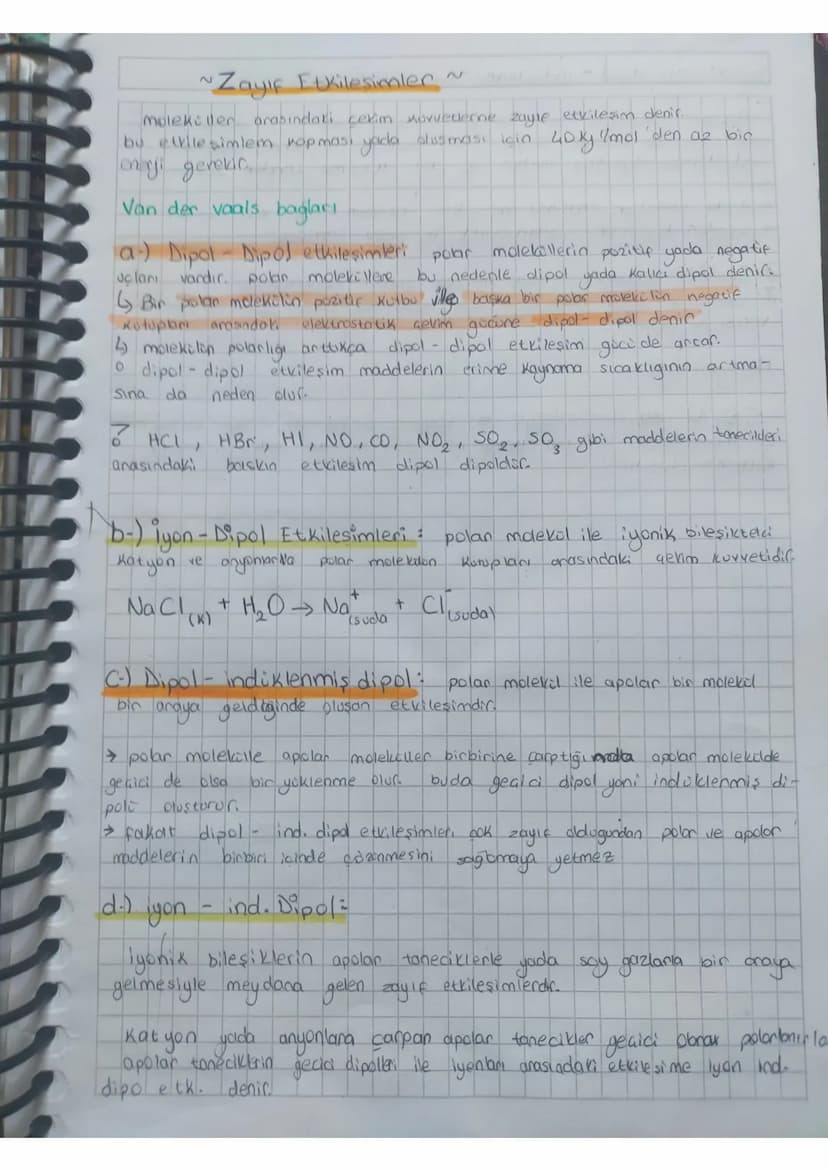 ~ Zayıf Etkileşimler ~
moleküller arasındaki çekim kuvvetlerine zayıf etkileşim denir.
bu etkileşimlerin kopması yada oluşması için 40 kj/mol'den az bir
enerji gerekir.
Van der vaals bağları
a-) Dipol - Dipol etkileşimleri polar moleküllerin pozitif yada negatif
uçları vardır. polar moleküllere bu nedenle dipol yada kalıcı dipol denir.
↳ Bir polar molekülün pozitif kutbu ile başka bir polar molekülün negatif
kutupları arasındaki elektrostatik çekim gücüne dipol-dipol denir
↳ molekülün polarlığı arttıkça dipol - dipol etkileşim gücü de artar.
o dipol - dipol etkileşim maddelerin erime kaynama sıcaklığının artma-
sına da neden olur.
HCl, HBr, HI, NO, CO, NO₂, SO₂, SO₃ gibi maddelerin tanecikleri
arasındaki baskın etkilesim dipol dipoldür.
b-) İyon - Dipol Etkileşimleri : polar molekül ile iyonik bileşikteki
katyon ve anyonlarla polar molekülün kutupları arasındaki çekim kuvvetidir.
NaCl(k) + H₂O → Na⁺(suda + Cl⁻(suda)
c-) Dipol - indüklenmiş dipol : polar molekül ile apolar bir molekül
bir araya geldiğinde oluşan etkileşimdir.
→ polar molekülle apolar moleküller birbirine çarptığında apolar molekülde
geçici de olsa bir yüklenme olur. buda geçici dipol yani indüklenmiş di-
polü oluşturur.
→ fakat dipol - ind. dipol etkileşimleri çok zayıf olduğundan polar ve apolar
maddelerin birbiri içinde çözünmesini sağlamaya yetmez
d-) iyon - ind. Dipol:
İyonik bileşiklerin apolar taneciklerle yada soy gazlarla bir araya
gelmesiyle meydana gelen zayıf etkileşimlerdir.
Katyon yada anyonlara çarpan apolar tanecikler geçici olarak polarlanırla
apolar taneciklerin geçici dipolleri ile iyonların arasındaki etkilesime iyon ind.
dipo etk. denir.